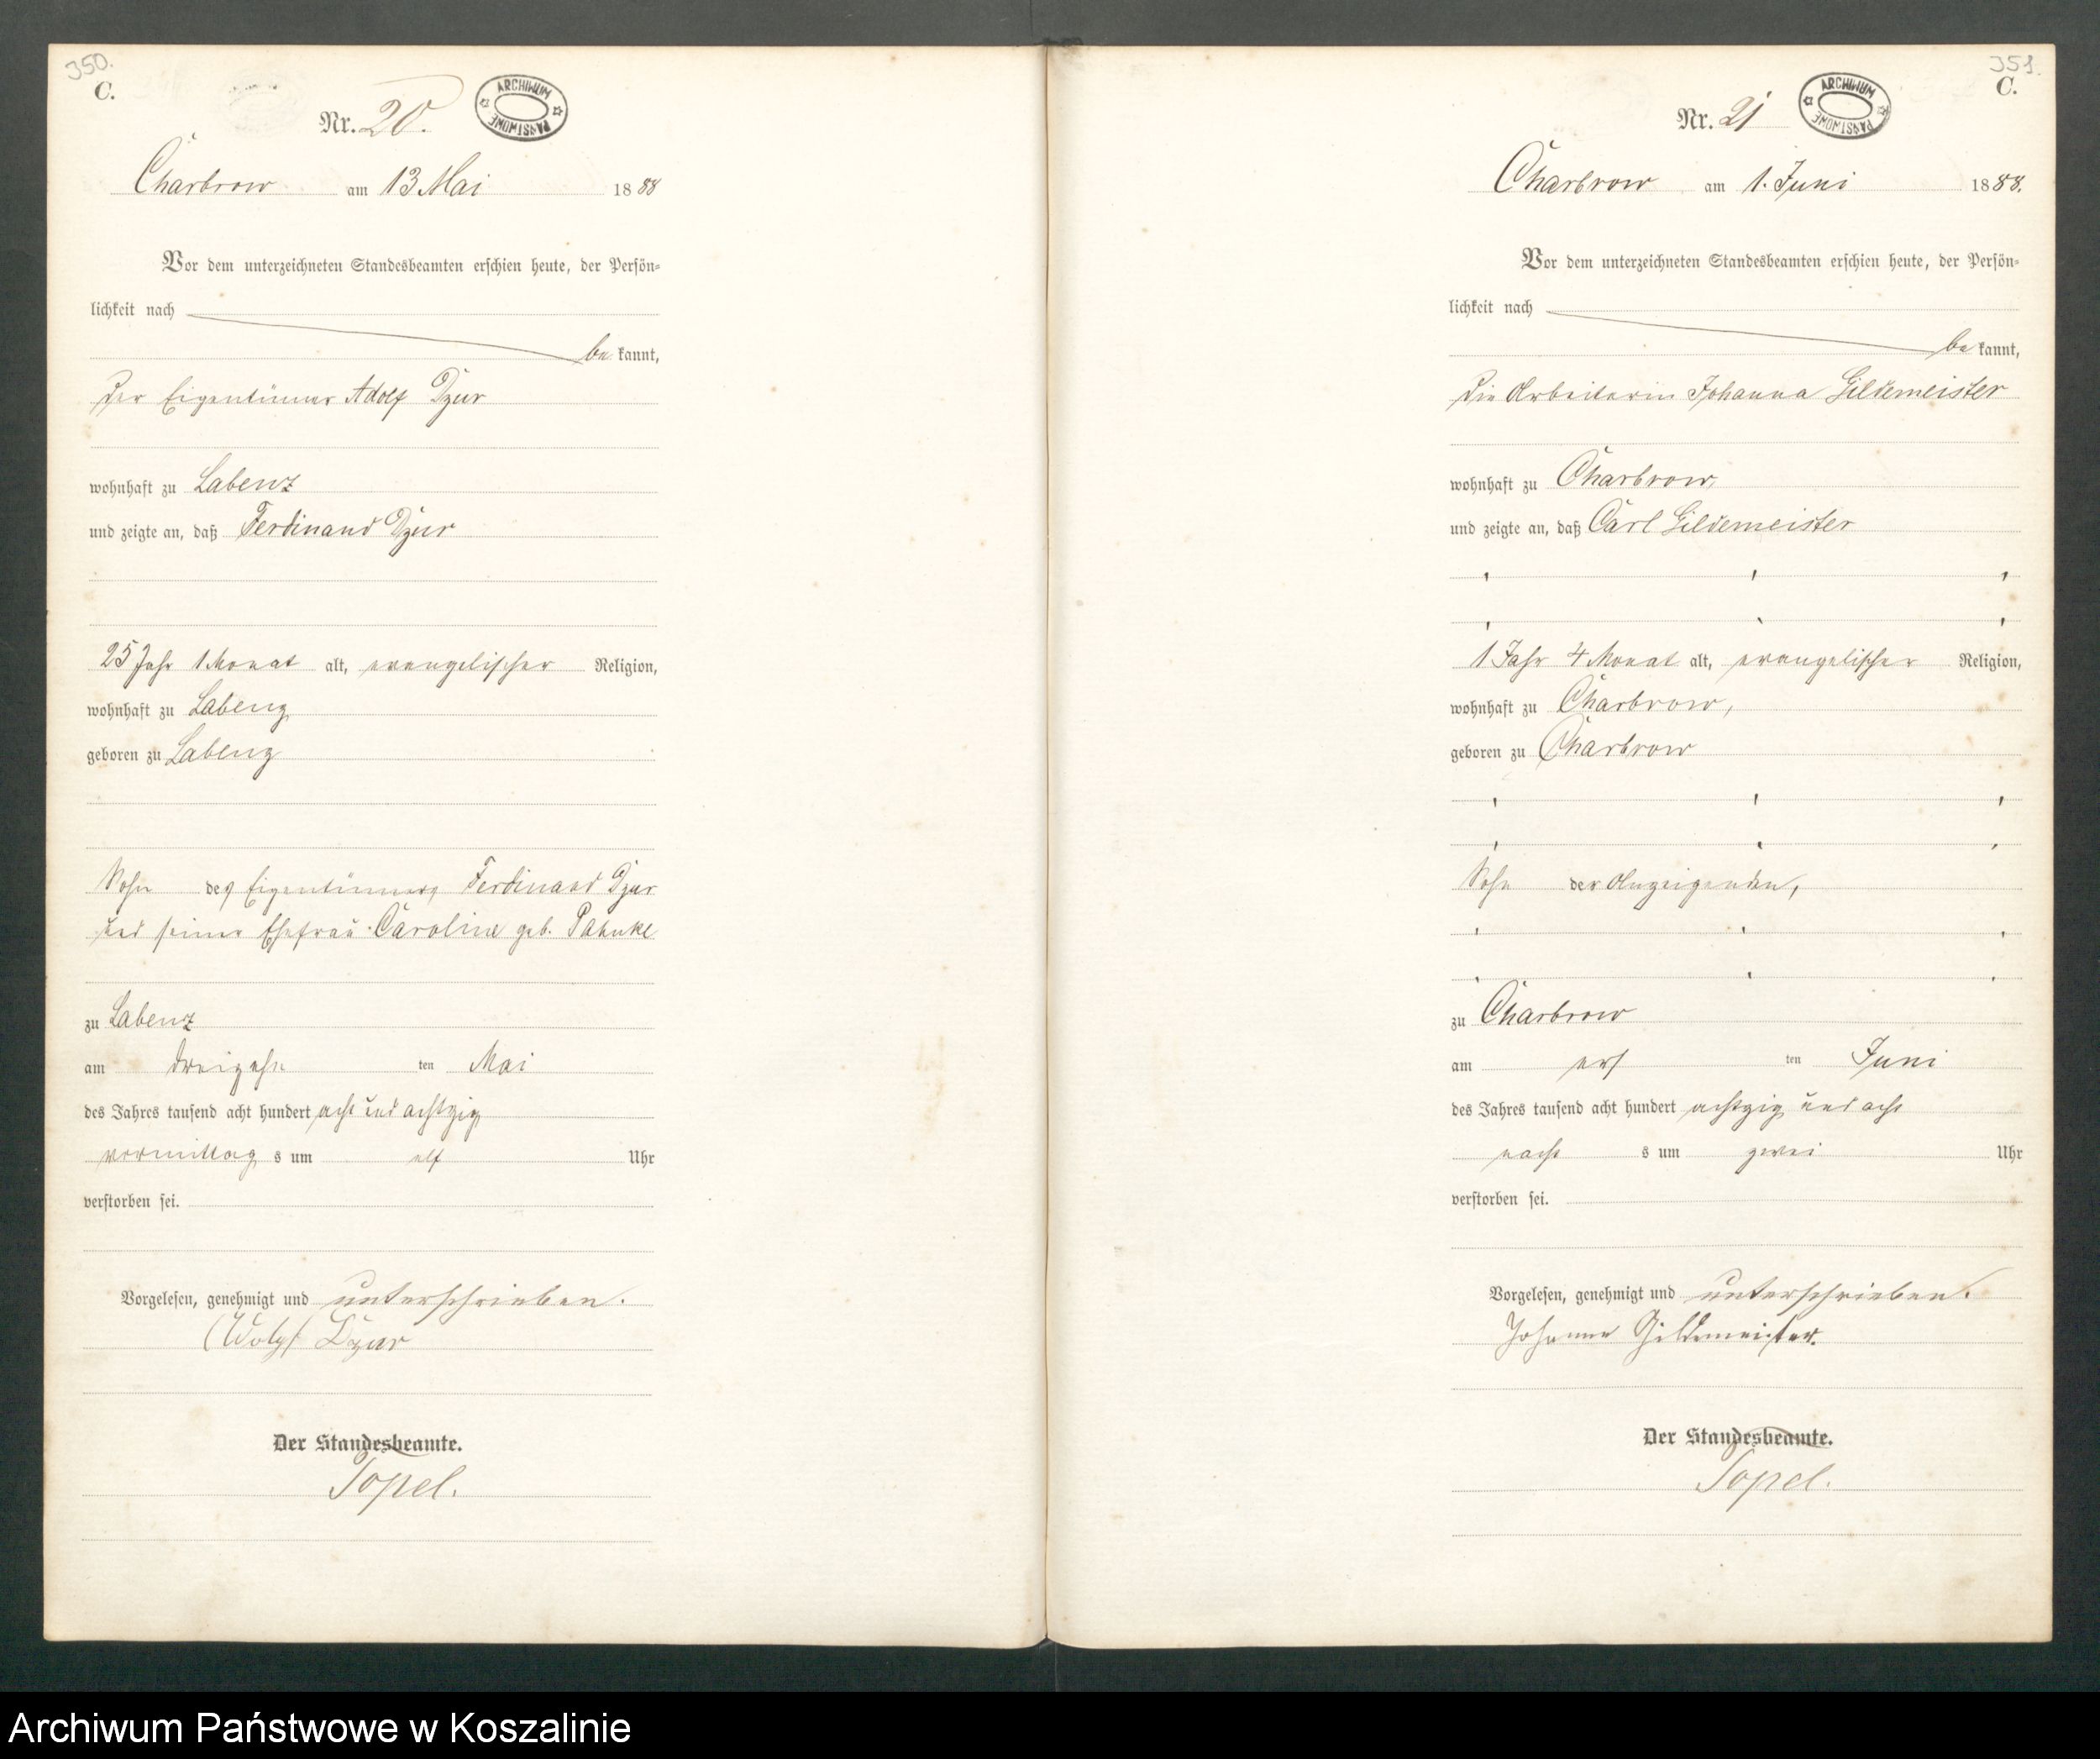 350.
C.
Nr. 20.
ARCHIWUM PAŃSTWOWE
Charbrow am 13 Mai 1888
Vor dem unterzeichneten Standesbeamten erschien heute, der Persön-
lichkeit nach
be kannt,
der Eigentümer Adolf Dzur
wohnhaft zu Labenz
und zeigte an, daß Ferdinand Dzur
25 Jahr 1 Monat alt, evangelischer Religion,
wohnhaft zu Labenz
geboren zu Labenz
Sohn des Eigentümers Ferdinand Dzur
und seiner Ehefrau Caroline geb. Pahnke
zu Labenz
am dreizehn ten Mai
des Jahres tausend acht hundert acht und achtzig
vormittag s um elf Uhr
verstorben sei.
Vorgelesen, genehmigt und unterschrieben.
Adolf Dzur
Der Standesbeamte.
Topel.
351.
C.
Nr. 21
ARCHIWUM PAŃSTWOWE
Charbrow am 1. Juni 1888.
Vor dem unterzeichneten Standesbeamten erschien heute, der Persön-
lichkeit nach
be kannt,
die Arbeiterin Johanna Gildemeister
wohnhaft zu Charbrow,
und zeigte an, daß Carl Gildemeister
1 Jahr 4 Monat alt, evangelischer Religion,
wohnhaft zu Charbrow,
geboren zu Charbrow
Sohn der Anzeigenden,
zu Charbrow
am ers ten Juni
des Jahres tausend acht hundert achtzig und acht
nacht s um zwei Uhr
verstorben sei.
Vorgelesen, genehmigt und unterschrieben.
Johanna Gildemeister.
Der Standesbeamte.
Topel.
Archiwum Państwowe w Koszalinie